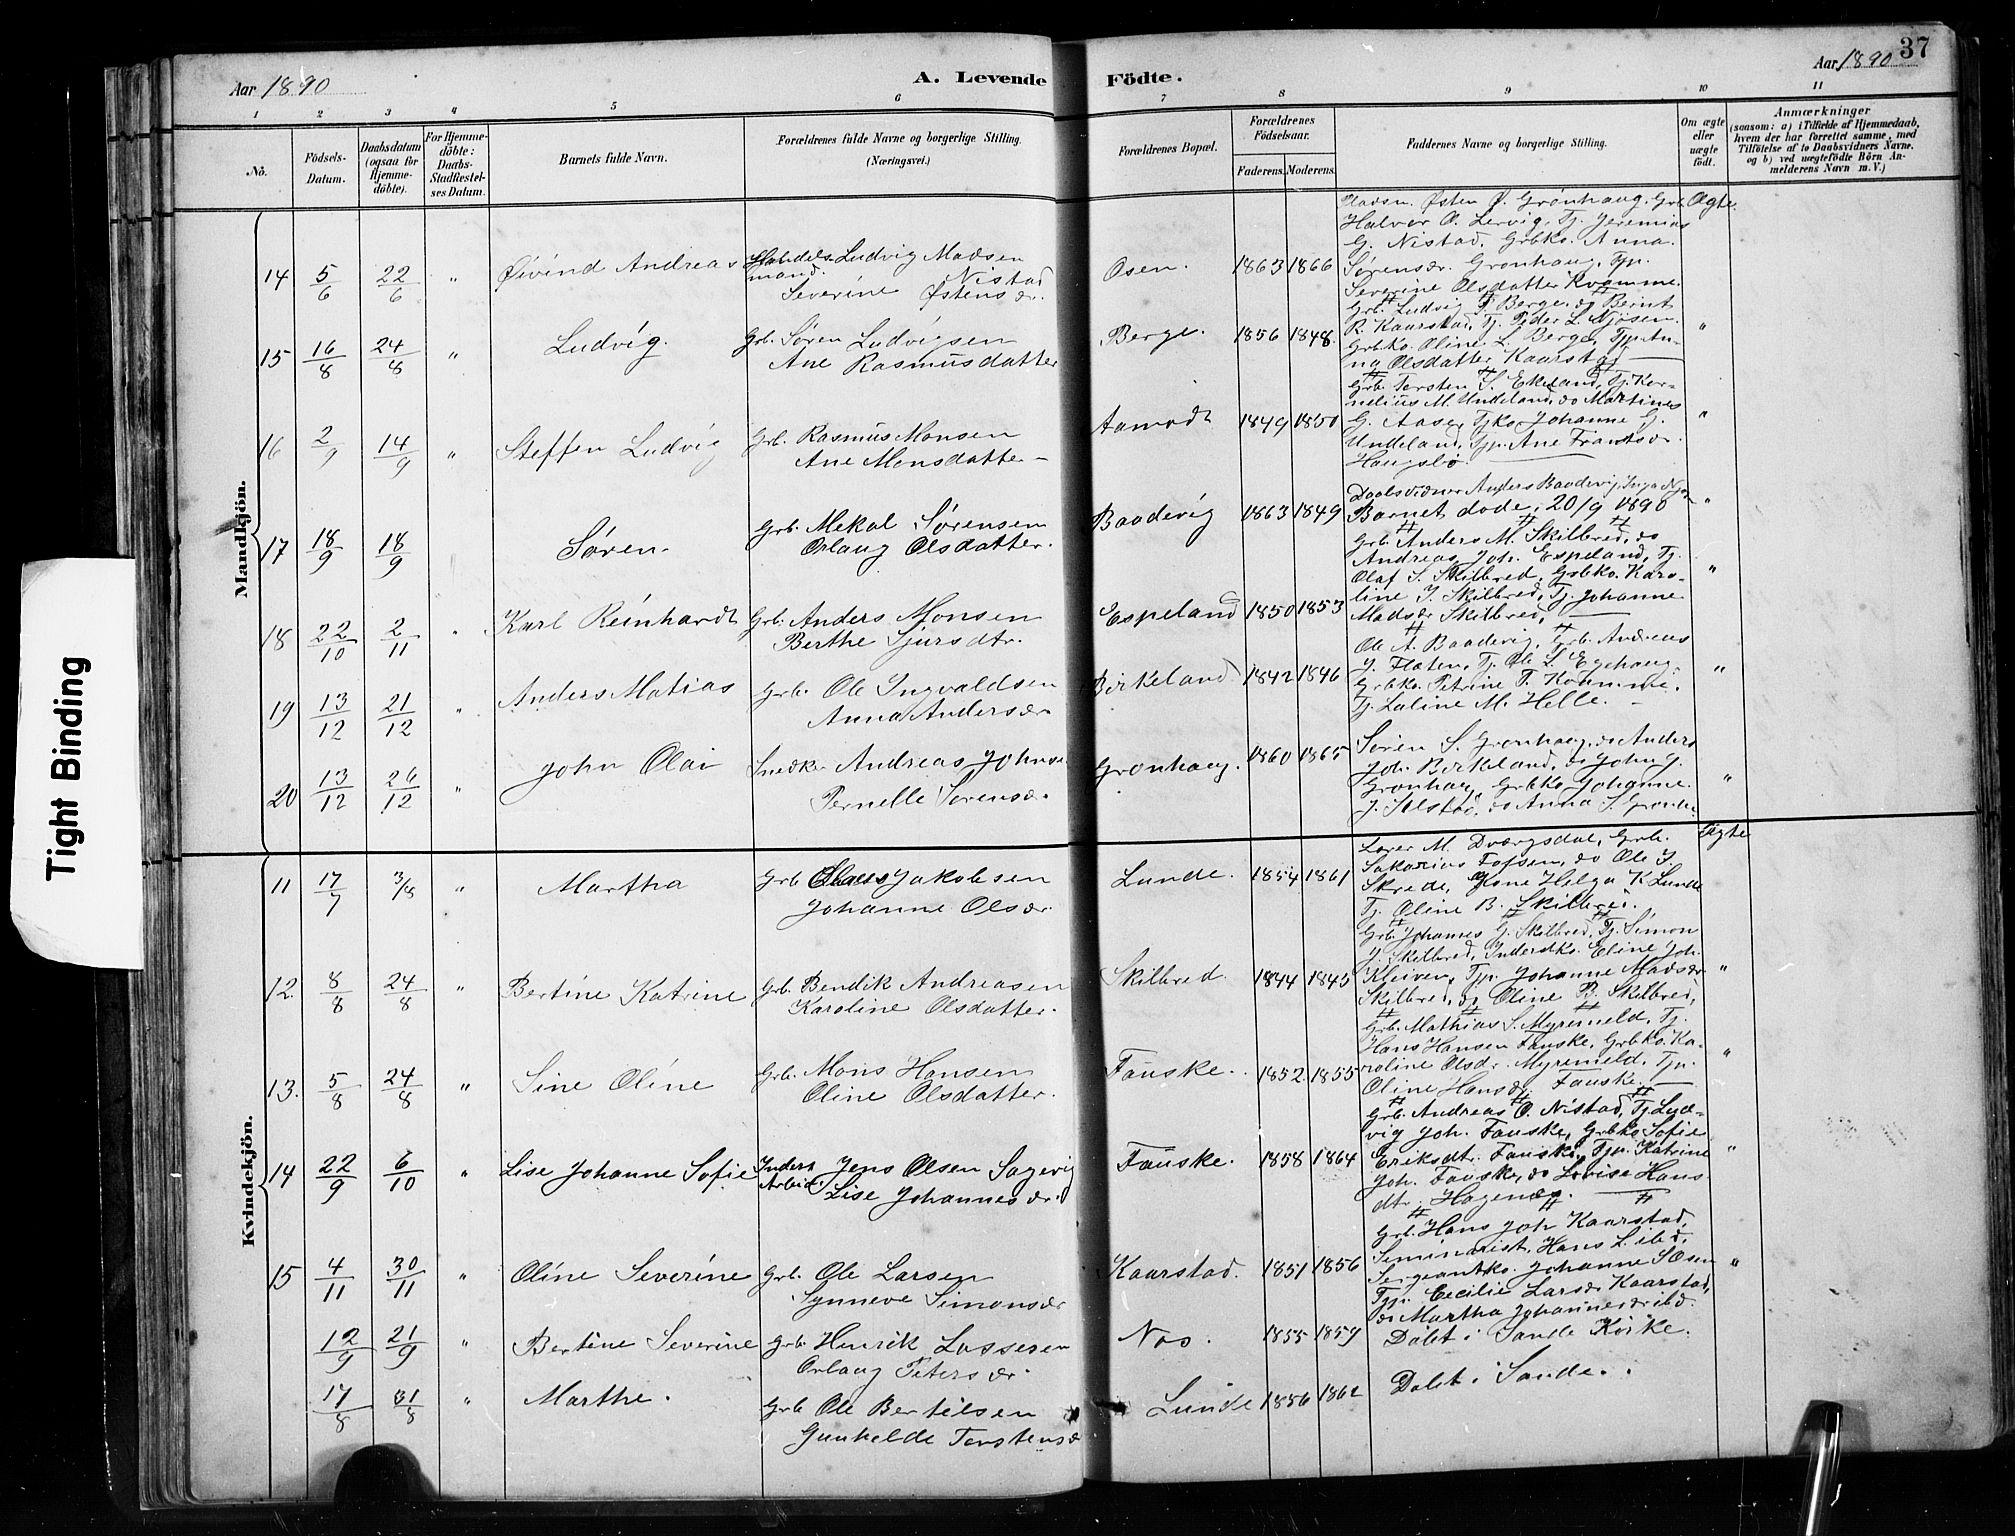 Aar 1890
A. Levende Födte.
Aar 1890
37
1 2 3 4 5 6 7 8 9 10 11
No.
Födsels-Datum.
Daabsdatum (ogsaa for Hjemmedöbte).
For Hjemmedöbte: Daabs-Stadfæstelses Datum.
Barnets fulde Navn.
Forældrenes fulde Navne og borgerlige Stilling. (Næringsvei.)
Forældrenes Bopæl.
Forældrenes Födselsaar.
Faderens. Moderens.
Faddernes Navne og borgerlige Stilling.
Om ægte eller uægte födt.
Anmærkninger
(saasom: a) i Tilfælde af Hjemmedaab, hvem der har forrettet samme, med Tilföielse af to Daabsvidners Navne, og b) ved uægtefödte Börn Anmelderens Navn m. V.)
Mandkjön.
14 5/6 22/6 " Øivind Andreas Handelsmand Ludvig Madsen Nistad Severine Østensdr. Osen. 1863 1866
Pladsm. Østen O. Grønhaug, Grb. Ægte.
Halvor O. Lervig, Tj. Jeremias
G. Nistad, Grbko. Anna
Sørensdr. Grønhaug, Tjp.
Severine Olsdatter Kvamme.
15 16/8 24/8 " Ludvig. Grb. Søren Ludvigsen Ane Rasmusdatter Berge. 1856 1848. "
Grb. Ludvig T. Berge, do Bernt
R. Kaarstad, Tj. Peder L. Mjøsen.
Grbko. Oline L. Berge, Tjp. An-
na Olsdatter Kaarstad
16 2/9 14/9 " Steffen Ludvig Grb. Rasmus Monsen Ane Monsdatter Aamodt 1849 1850 "
Grb. Torsten S. Ekeland, Tj. Kor-
nelius M. Undeland, do Martines
G. Aase, Tjko Johanne G.
Undeland, Tjp. Ane Frantsdr.
Haugsbø.
17 18/9 18/9 Søren. Grb. Mekal Sørensen Orlaug Olsdatter. Baadevig 1863 1849 "
Daabsvidner Anders Baadevig,
Barnet døde; 20/9 1890
18 22/10 2/11 " Karl Reinhardt Grb. Anders Monsen Berthe Sjursdtr. Espeland 1850 1853 "
Grb. Anders M. Skilbred, do
Andreas Joh. Espeland, Tj.
Olaf S. Skilbred, Grbko. Karo-
line J. Skilbred, Tj. Johanne
Madsdr Skilbred,
19 13/12 21/12 " Anders Matias Grb. Ole Ingvaldsen Anna Andersdr Birkeland 1842 1846 "
Ole A. Baadevig, Grb. Andreas
J. Flaten, Tj. Ole L. Egehaug.
Grbko. Petrine T. Kvamme.
Tj. Laline M. Helle.
20 13/12 26/12 " John Olai Snedker Andreas Johns Pernelle Sørensdr. Grønhaug. 1860 1865 "
Søren S. Grønhaug, do Anders
Joh. Birkeland, do John J.
Grønhaug, Grbko Johanne
J. Solstad, do Anna S. Grønh.
Kvindekjön.
11 17/7 3/8 " Martha Grb Claus Jakobsen Johanne Olsdr. Lunde. 1854 1861 Ægte
Lærer M. Dvergsdal, Grb.
Sakarias Tofsen, do Ole J.
Skrede, Kone Helga K Lunde
Tj. Oline B. Skilbred.
12. 8/8 24/8 " Bertine Katrine Grb. Bendik Andreasen Karoline Olsdatter. Skilbred. 1844 1845 "
Grb. Johannes G. Skilbred, Tj. Simon
J. Skilbred, Inderstko. Eline Joh.
Kleiven, Tjp. Johanne Madsdr
Skilbred, do Oline B. Skilbred,
13. 5/8 24/8 " Sine Oline Grb. Mons Hansen Oline Olsdatter. Fauske. 1852. 1855 "
Grb. Mathias S. Myrmeld, Tj.
Hans Hansen Fauske, Grbko. Ka-
roline Olsdr. Myrmeld, Tjp.
Oline Hansdr. Fauske.
14 22/9 6/10 " Lise Johanne Sofie Inderst Arbeid. Jens Olsen Sagevig Lise Johannesdr. Fauske. 1858 1864 "
Grb. Andreas O. Nistad, Tj. Lud-
vig Joh. Fauske, Grbko Sofie
Eriksdt. Fauske, Tjp. Katrine
Joh. Fauske, do Lovise Hans
dtr. Hagenæs.
15 4/11 30/11 " Oline Severine Grb. Ole Larsen Synneve Simonsdr Kaarstad. 1851 1856 "
Grb. Hans Joh Kaarstad,
Seminarist, Hans L. ibd.
Sergeantko. Johanne S Osen
Tjp. Cecilie Larsdr Kaarstad,
do Martha Johannesdr ibd.
12/9 21/9 " Bertine Severine Grb Henrik Lassesen Orlaug Petersdr. Nos. 1855 1859 Døbt i Sande Kirke.
17/8 31/8 " Marthe. Grb Ole Bertilsen Gunhilde Torstensdr Lunde 1856 1862 Døbt i Sande.
Tight Binding